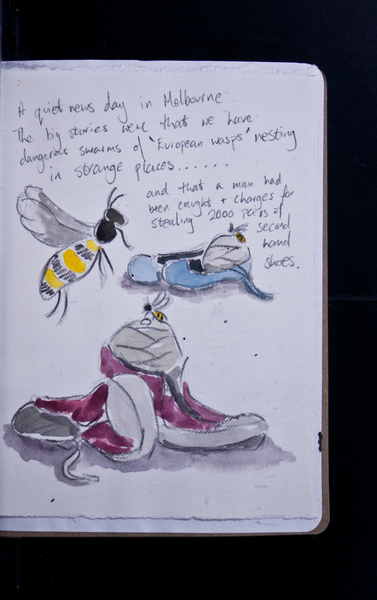 A quiet news day in Melbourne
The big stories were that we have
dangerous swarms of 'European wasps' nesting
in strange places......
and that a man had
been caught + charges for
stealing 2000 pairs of
second
hand
shoes.